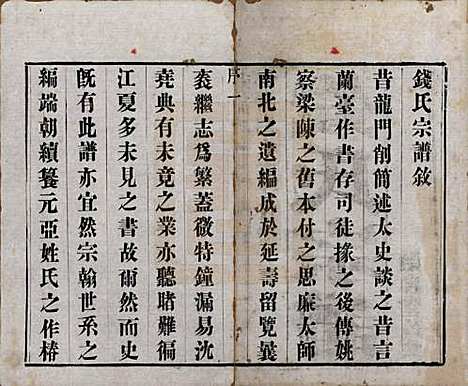 錢氏宗譜敘
昔龍門削簡述太史談之昔言
蘭臺作書存司徒掾之後傳姚
察梁陳之舊本付之思廉太師
南北之遺編成於延壽留覽曩
序一
袠繼志爲繁蓋微特鐘漏易沈
堯典有未竟之業亦聽睹難徧
江夏多未見之書故爾然而史
旣有此譜亦宜然宗翰世系之
編端朝續簒元亞姓氏之作椿